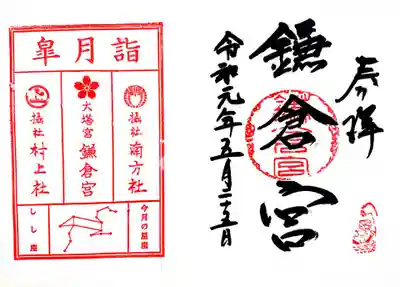 奉拝
鎌倉宮
令和元年五月二十五日
皐月詣
攝社 南方社
大塔宮 鎌倉宮
攝社 村上社
今月の星座
しし座